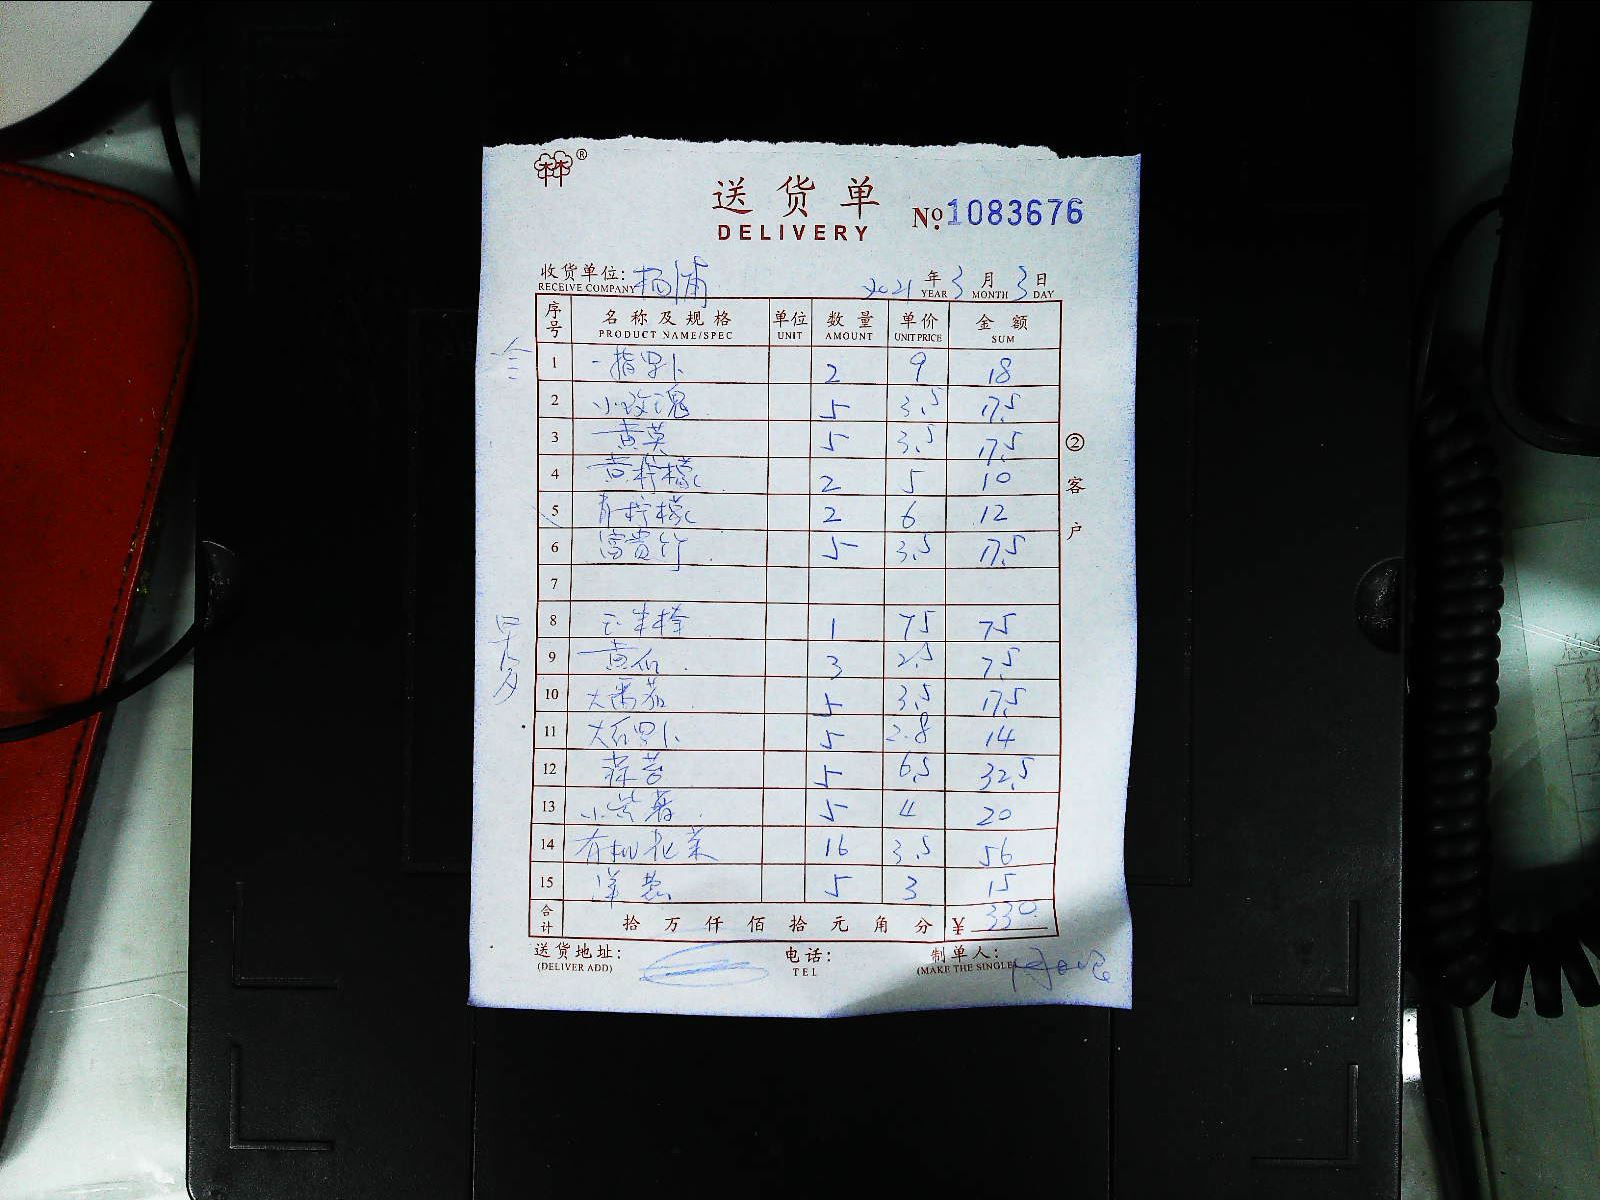 林®
送货单
DELIVERY
№ 1083676
收货单位: 杨浦 2021年3月3日
RECEIVE COMPANY YEAR MONTH DAY
序号 名称及规格 单位 数量 单价 金额
PRODUCT NAME/SPEC UNIT AMOUNT UNIT PRICE SUM
1 一指罗卜 2 9 18
2 小玫瑰 5 3.5 17.5
3 黄英 5 3.5 17.5
4 黄柠檬 2 5 10
5 青柠檬 2 6 12
6 富贵竹 5 3.5 17.5
7
8 1 75 75
9 黄瓜 3 2.5 7.5
10 大番茄 5 3.5 17.5
11 大白罗卜 5 2.8 14
12 5 6.5 32.5
13 小紫薯 5 4 20
14 有机花菜 16 3.5 56
15 洋葱 5 3 15
合计 拾万仟佰拾元角分 ¥ 330
送货地址: 电话: 制单人:
(DELIVER ADD) TEL (MAKE THE SINGLE)
②客户